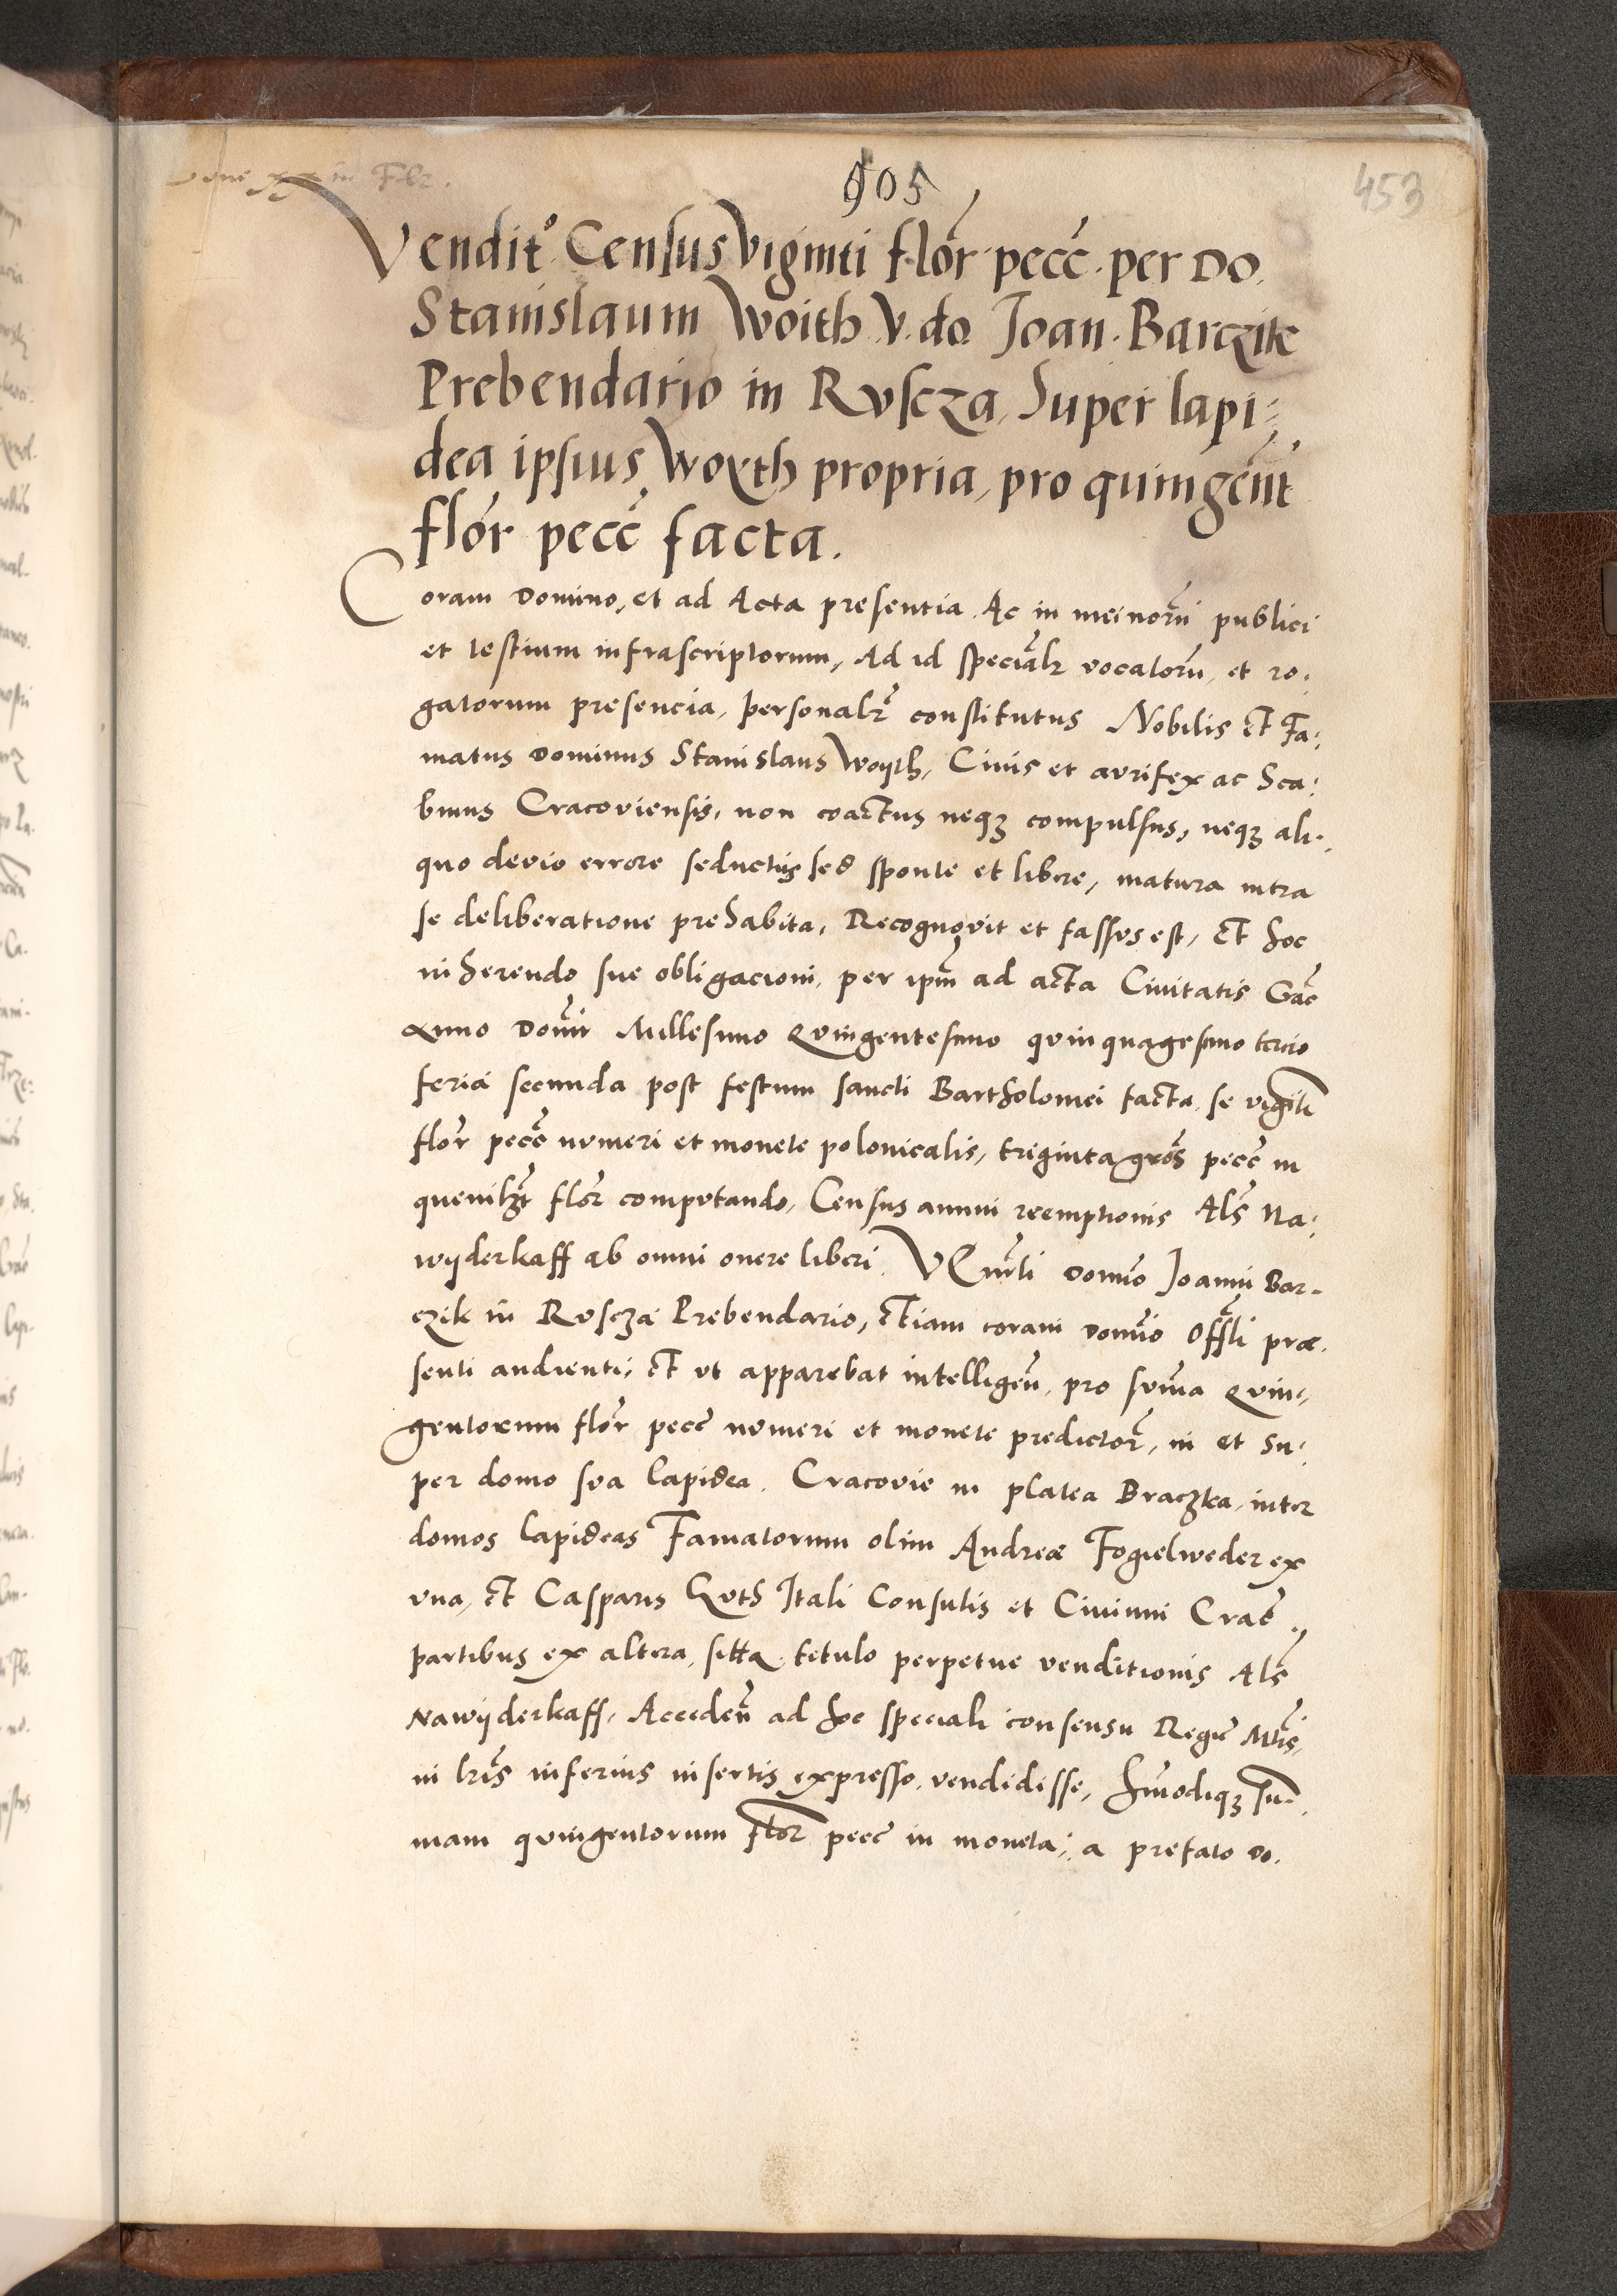 905
453
Vendit° Census Viginti flor pecc. per DO.
Stanislaum Woith V. do. Joan. Barczik
Prebendario in Ruscza, Super lapi:
dea ipsius Woyth propria, pro quingent
flor pecc facta.
Coram Domino, et ad Acta presentia. Ac in mei notarii publici
et testium infrascriptorum, Ad id specialr vocatoru, et ro:
gatorum presencia, personalr constitutus Nobilis Et Fa:
matus Dominus Stanislaus Woyth, Civis et aurifex ac Sca:
binus Cracoviensis, non coactus neqz compulsus, neqz ali:
quo devio errore seductus sed sponte et libere, matura intra
se deliberatione prehabita, Recognovit et fassus est, Et hoc
inherendo sue obligacioni, per ipm ad acta Civitatis Crac
Anno Domini Millesimo Quingentesimo quinquagesimo tercio
feria secunda post festum sancti Bartholomei facta, se viginti
flor pecc numeri et monete polonicalis, triginta gros pecc in
quemlzt flor computando, Census annui reemptionis Als Na:
wyderkaff ab omni onere liberi. Domino Joanni Bar-
czik in Ruscza Prebendario, Etiam coram domino Offli præ
senti audienti, Et ut apparebat intelligen, pro suma Quin-
gentorum flor pecc numeri et monete predictor, in et su:
per domo sua lapidea. Cracovie in platea Braczka, inter
domos lapideas Famatorum olim Andreæ Fogielweder ex
una, Et Casparis Guth Itali Consulis et Civium Crac.,
partibus ex altera, sitta. tetulo perpetue venditionis Als
Nawyderkaff, Acceden ad hoc speciali consensu Regie Mtis,
in lris inferius insertis expresso, vendidisse, Hmodiqz sum
mam quingentorum flor pecc in moneta, a prefato Do.